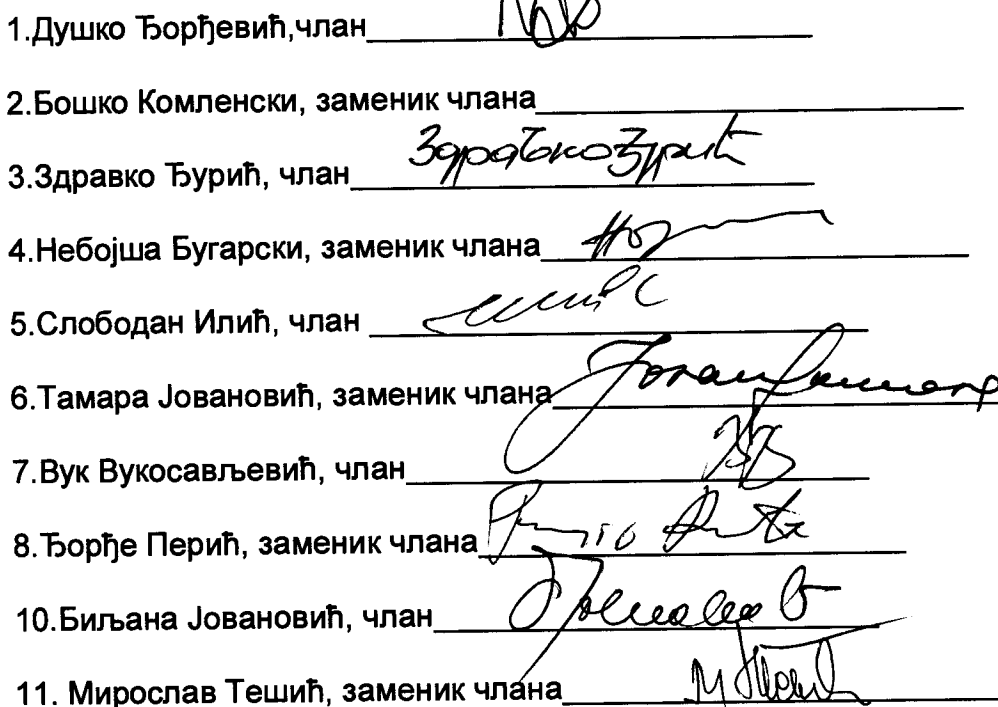 1.Душко Ђорђевић,члан
2.Бошко Комленски, заменик члана
3.Здравко Ђурић, члан Здравко Ђурић
4.Небојша Бугарски, заменик члана
5.Слободан Илић, члан
6.Тамара Јовановић, заменик члана
7.Вук Вукосављевић, члан
8.Ђорђе Перић, заменик члана
10.Биљана Јовановић, члан
11. Мирослав Тешић, заменик члана